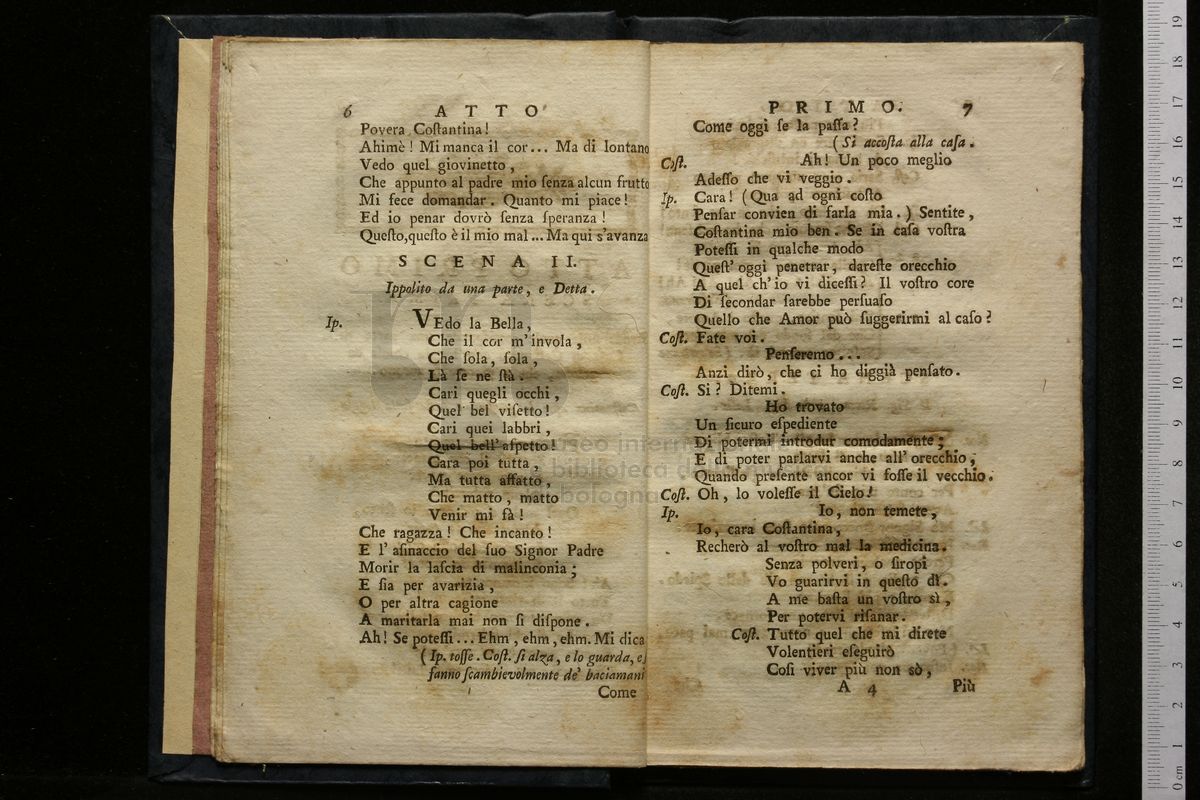 6 ATTO
Povera Coſtantina!
Ahimè! Mi manca il cor... Ma di lontano
Vedo quel giovinetto,
Che appunto al padre mio ſenza alcun frutto
Mi fece domandar. Quanto mi piace!
Ed io penar dovrò ſenza ſperanza!
Queſto, queſto è il mio mal... Ma qui s'avanza
SCENA II.
Ippolito da una parte, e Detta.
Ip. VEdo la Bella,
Che il cor m'invola,
Che ſola, ſola,
Là ſe ne ſtà.
Cari quegli occhi,
Quel bel viſetto!
Cari quei labbri,
Quel bell'aſpetto!
Cara poi tutta,
Ma tutta affatto,
Che matto, matto
Venir mi fà!
Che ragazza! Che incanto!
E l'aſinaccio del ſuo Signor Padre
Morir la laſcia di malinconia;
E ſia per avarizia,
O per altra cagione
A maritarla mai non ſi diſpone.
Ah! Se poteſſi... Ehm, ehm, ehm. Mi dica
(Ip. toſſe. Coſt. ſi alza, e lo guarda, e
fanno ſcambievolmente de' baciamani
Come
PRIMO. 7
Come oggi ſe la paſſa?
(Si accoſta alla caſa.
Coſt. Ah! Un poco meglio
Adeſſo che vi veggio.
Ip. Cara! (Qua ad ogni coſto
Penſar convien di farla mia.) Sentite,
Coſtantina mio ben. Se in caſa voſtra
Poteſſi in qualche modo
Queſt'oggi penetrar, dareſte orecchio
A quel ch'io vi diceſſi? Il voſtro core
Di ſecondar ſarebbe perſuaſo
Quello che Amor può ſuggerirmi al caſo?
Coſt. Fate voi.
Penſeremo...
Anzi dirò, che ci ho diggià penſato.
Coſt. Si? Ditemi.
Ho trovato
Un ſicuro eſpediente
Di potermi introdur comodamente;
E di poter parlarvi anche all'orecchio,
Quando preſente ancor vi foſſe il vecchio.
Coſt. Oh, lo voleſſe il Cielo!
Ip. Io, non temete,
Io, cara Coſtantina,
Recherò al voſtro mal la medicina.
Senza polveri, o ſiropi
Vo guarirvi in queſto dì.
A me baſta un voſtro sì,
Per potervi riſanar.
Coſt. Tutto quel che mi direte
Volentieri eſeguirò
Coſi viver più non sò,
A 4 Più
museo internazionale
biblioteca della musica
bologna
0 cm 1 2 3 4 5 6 7 8 9 10 11 12 13 14 15 16 17 18 19